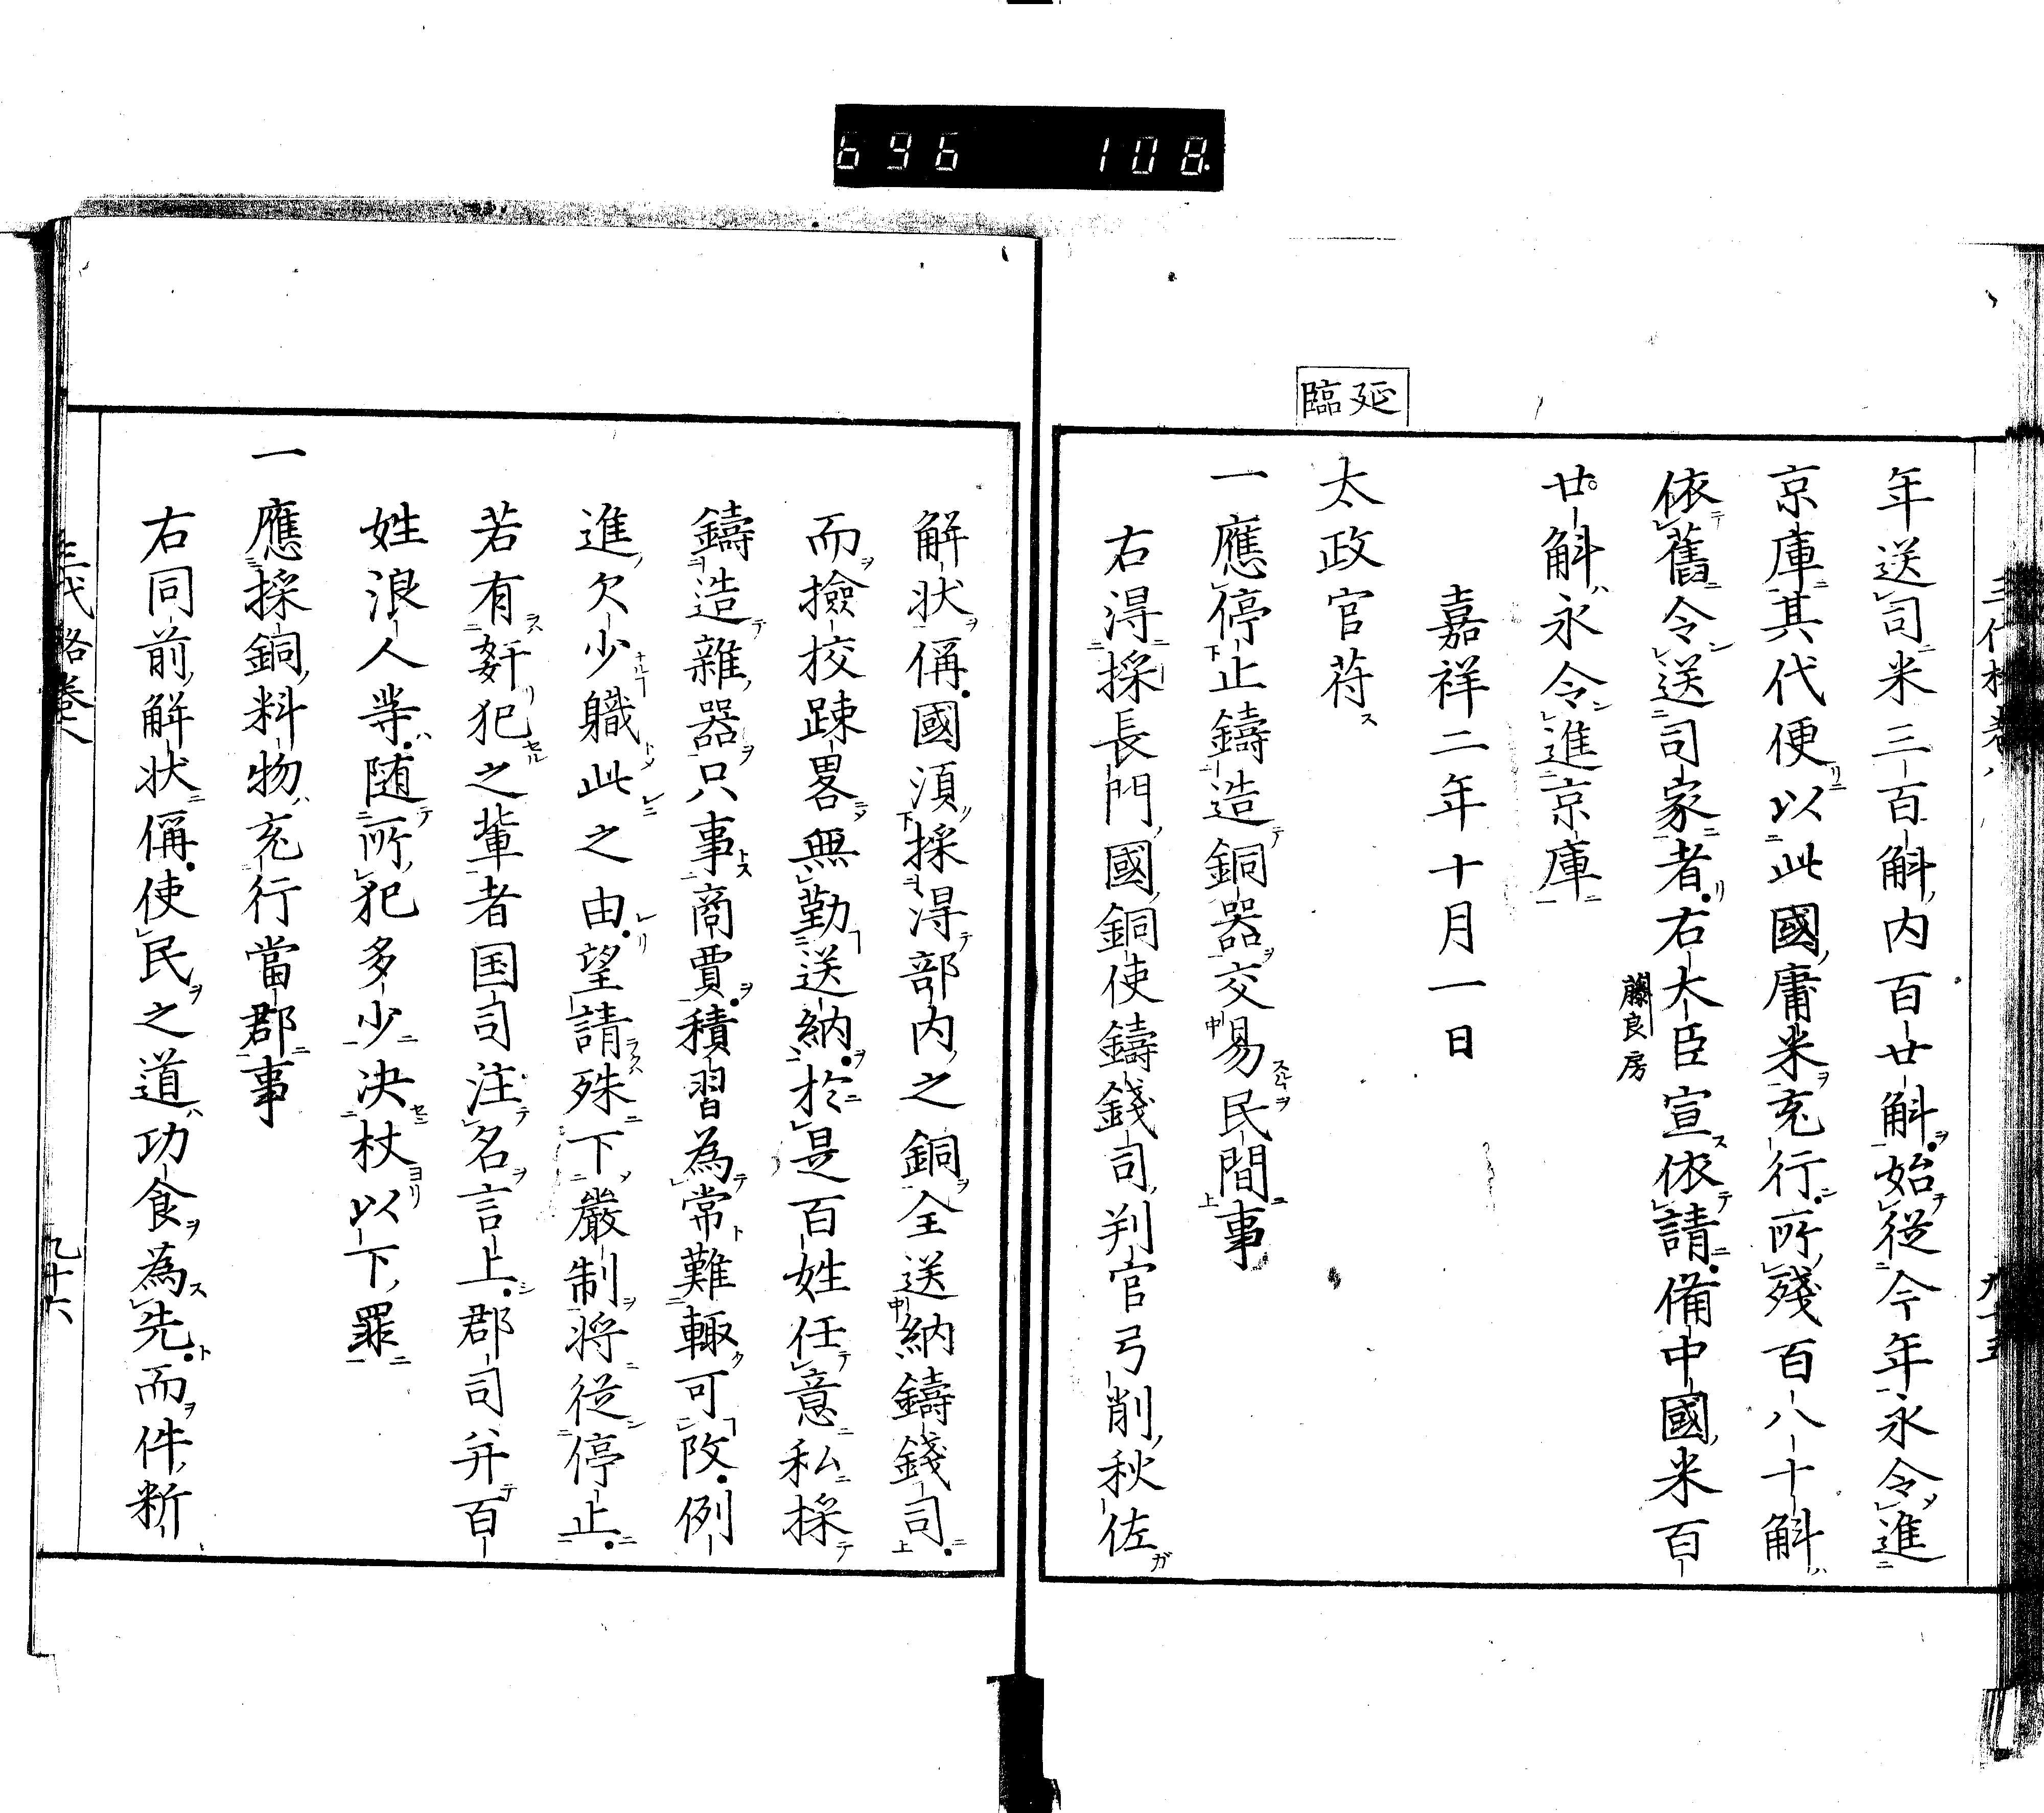 696 108
臨延
年送司米三百斛内百廿斛始従今年永令進
京庫其代便以此國庸米充行所殘百八十斛
依舊令送司家者右大臣宣依請備中國米百
藤良房
廿斛永令進京庫
嘉祥二年十月一日
太政官苻
一應停止鑄造銅器交易民間事
右得採長門國銅使鑄錢司判官弓削秋佐
解状偁國須採得部内之銅全送納鑄錢司
而撿挍踈畧無勤送納於是百姓任意私採
鑄造雜器只事商賈積習為常難輙可改例
進欠少職此之由望請殊下嚴制将従停止
若有姧犯之輩者国司注名言上郡司并百
姓浪人等随所犯多少决杖以下罪
一應採銅料物充行當郡事
右同前解状偁使民之道功食為先而件新
三代格巻八
九十六